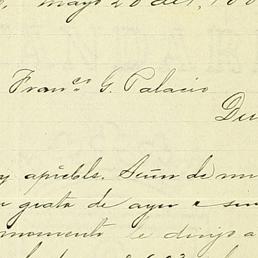 mayo 20 de 1,
Franco. G. Palacio
Du
y apreble. Señor de mi
grata de ayer e
momento le dirijo a